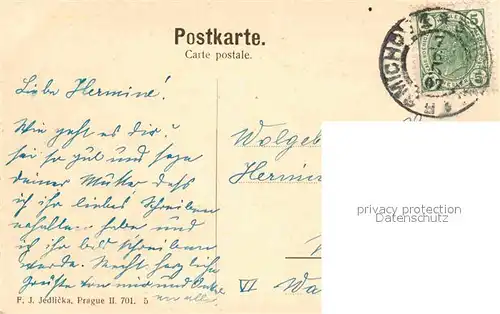 Postkarte.
Carte postale.
5 5
SMICHOV
Liebe Hermine!
Wie geht es dir u
sei so gut und sage
deiner Mutter dass
ich ihr liebes Schreiben
erhalten habe und
ich ihr bald schreiben
werde. Recht herzliche
Grüsse von mir und Onkel
an alle.
Wolgeb
Hermin
VI Wa
privacy protection
Datenschutz
F. J. Jedlička, Prague II. 701. 5